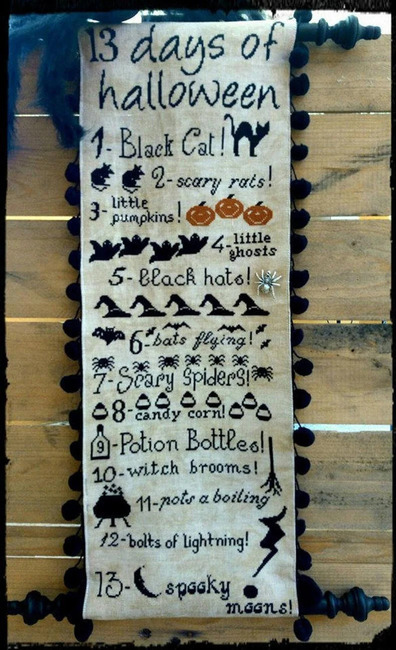 13 days of
halloween
1- Black Cat!
2-scary rats!
3- little
pumpkins!
4- little
ghosts
5- black hats!
6-bats flying!
7-Scary Spiders!
8-candy corn!
9-Potion Bottles!
10-witch brooms!
11-pots a boiling
12-bolts of lightning!
13- spooky
moons!